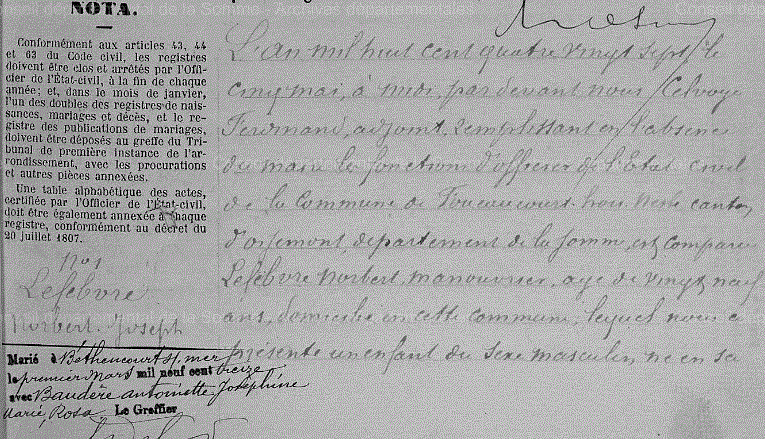 NOTA.
Conformément aux articles 43, 44
et 63 du Code civil, les registres
doivent être clos et arrêtés par l'Offi-
cier de l'État-civil, à la fin de chaque
année; et, dans le mois de janvier,
l'un des doubles des registres de nais-
sances, mariages et décès, et le re-
gistre des publications de mariages,
doivent être déposés au greffe du Tri-
bunal de première instance de l'ar-
rondissement, avec les procurations
et autres pièces annexées.
Une table alphabétique des actes,
certifiée par l'Officier de l'État-civil,
doit être également annexée à chaque
registre, conformément au décret du
20 juillet 1807.
No 1
Lefebvre
Norbert Joseph
Marié à Béthencourt s/ mer
le premier Mars mil neuf cent treize
avec Baudère Antoinette Joséphine
Marie, Rosa Le Greffier
L'an mil huit cent quatre vingt sept, le
cinq mai, à midi, par devant nous
Ferdinand, adjoint, remplissant en l'absence
du maire les fonctions d'officier de l'Etat civil
de la Commune de canton
d'oisemont, département de la Somme, est comparu
Lefebvre Norbert, manouvrier, age de vingt neuf
ans, domicilié en cette commune, lequel nous a
présenté un enfant du sexe masculin, né en sa